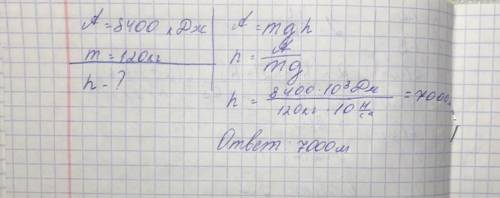 A = 8400 кДж
m = 120кг
h - ?
A = mgh
h = A / mg
h = 8400 · 10³ Дж / 120кг · 10 м/с² = 7000
Ответ 7000м